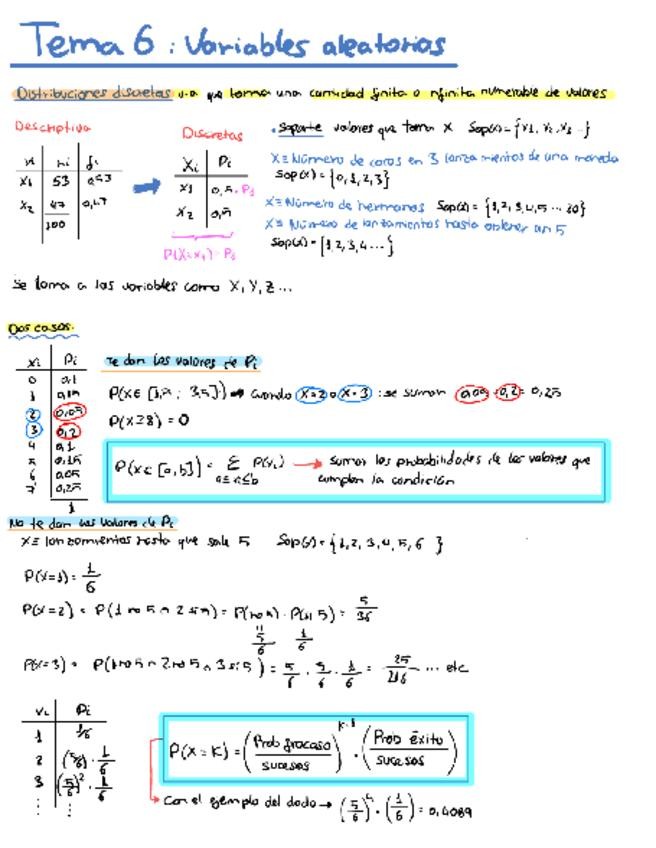 Tema 6 : Variables aleatorias
Distribuciones discretas v.a que toma una cantidad finita o infinita numerable de valores
Descriptiva
xi ni fi
x1 53 0,53
x2 47 0,47
100
Discretas
Xi Pi
x1 0,5 = P1
x2 0,5
P(X=x1) = Pi
• Soporte valores que toma X Sop(x) = {x1, x2, x3 ...}
X ≡ Número de caras en 3 lanzamientos de una moneda
Sop(x) = {0,1,2,3}
X ≡ Número de hermanos Sop(x) = {1,2,3,4,5 ... 20}
X ≡ Número de lanzamientos hasta obtener un 5
Sop(x) = {1,2,3,4 ...}
Se llama a las variables como X, Y, Z ...
Dos casos.
xi Pi
0 0,1
1
2 0,05
3 0,2
4 0,1
5 0,15
6 0,05
7 0,25
1
Te dan los valores de Pi
cuando X=2 o X=3 : se suman 0,05 + 0,2 = 0,25
P(X≥8) = 0
P(X∈[a,b]) = Σ P(xi) → sumar las probabilidades de los valores que
a≤xi≤b cumplan la condición
No te dan los valores de Pi
X ≡ lanzamientos hasta que sale 5 Sop(x) = {1,2,3,4,5,6 }
P(X=1) = 1/6
P(X=2) = P(1 no 5 ∩ 2 sí 5) = P(no 5) · P(sí 5) = 5/36
5/6 1/6
P(X=3) = P(1 no 5 ∩ 2 no 5 ∩ 3 sí 5) = 5/6 · 5/6 · 1/6 = 25/216 ... etc
xi Pi
1 1/6
2 (5/6) · 1/6
3 (5/6)² · 1/6
⋮ ⋮
P(X=K) = (Prob fracaso / sucesos)^(K-1) · (Prob éxito / sucesos)
Con el ejemplo del dado →